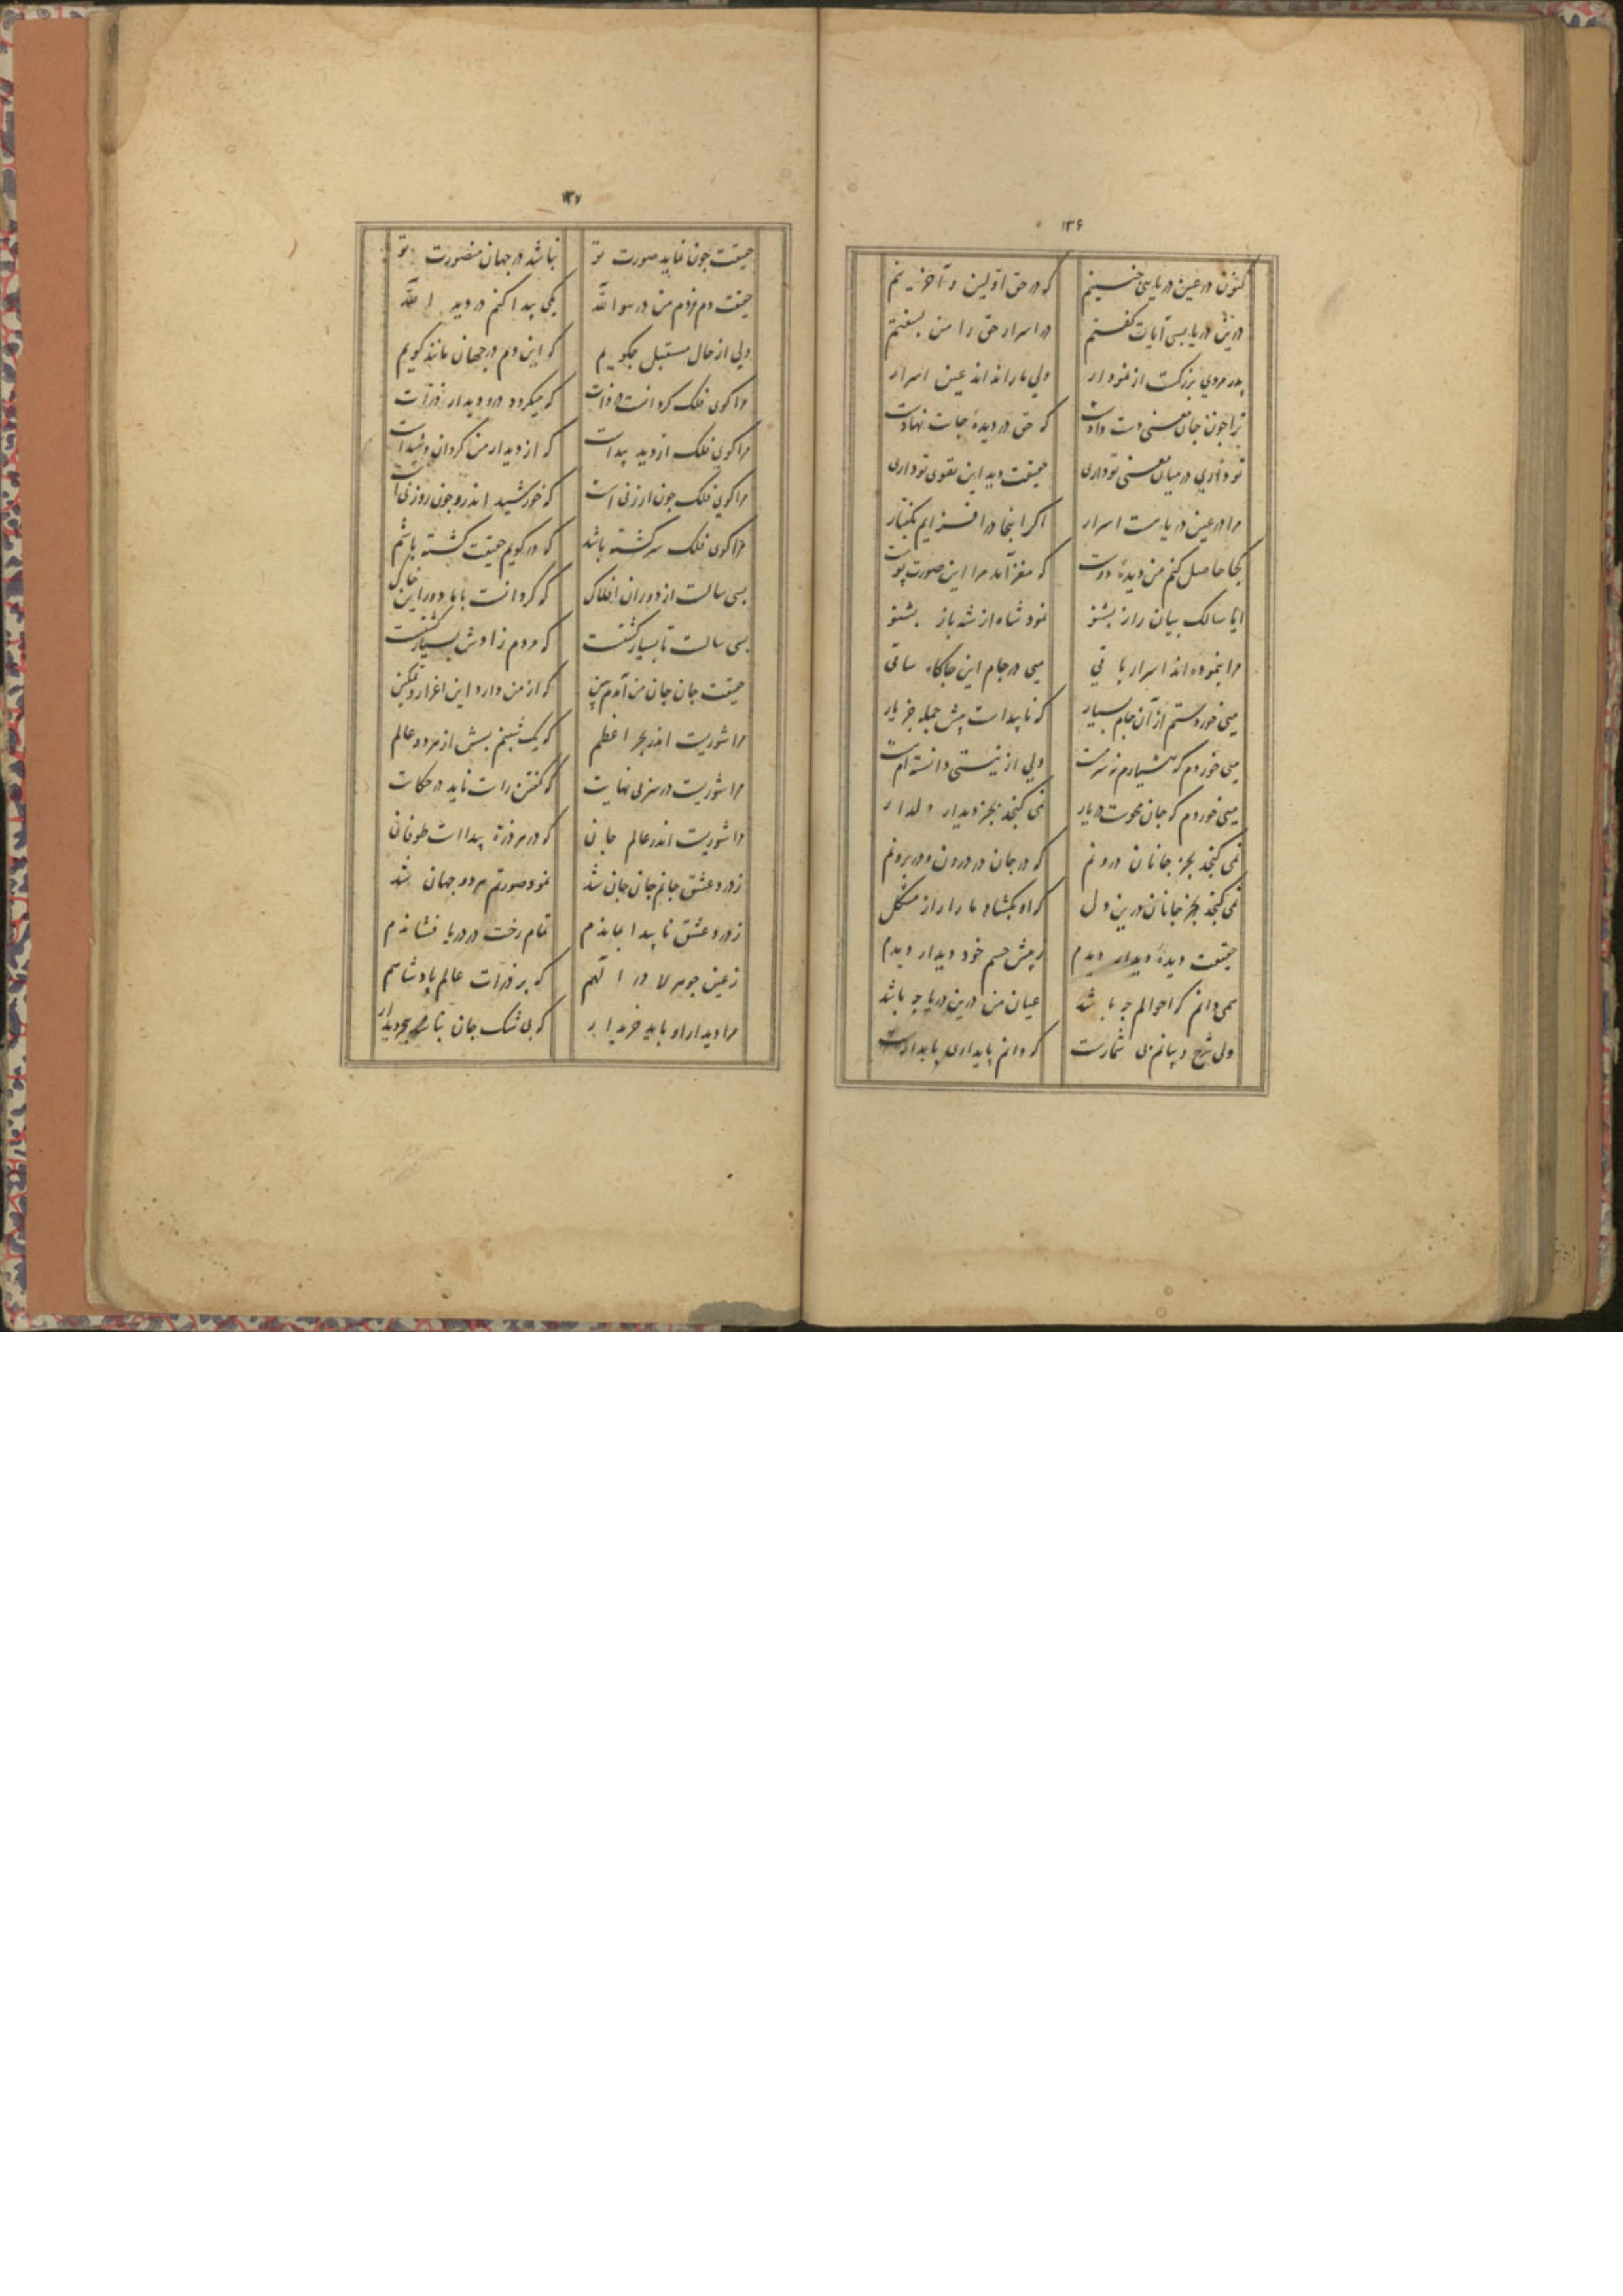 ۱۳۶
کنون در عین دریایی حسینیم که در حق اولین و آخرینم
درین دریا بسی آیات گفتم در اسرار حق را من بسفتم
پدر مردی بزرکست از نمودار ولی ما را نداند عین اسرار
ترا چون جان معنی دست دادست که حق در دیدهٔ جانت نهادست
تو داری در میان معنی تو داری حقیقت دید این تقوی تو داری
مرا در عین دریاست اسرار اکر اینجا در افزایم بکفتار
کجا حاصل کنم من دیدهٔ دوست که مغز آمد مرا این صورت پوست
ایا سالک بیان راز بشنو نمود شاه از شه باز بشنو
مرا بنموده اند اسرار باقی میی در جام این جاکاه ساقی
میی خوردستم از آن جام بسیار که ناپیداست پیش جمله جز یار
میی خوردم که هشیارم نه سرمست ولی از نیستی دانسته ام هست
میی خوردم که جان محوست در یار نمی کنجد بجز دیدار دلدار
نمی کنجد بجز جانان درونم که در جان در درون و در برونم
نمی کنجد بجز جانان درین دل که او بکشاد ما را راز مشکل
حقیقت دیدهٔ دیدار دیدم ز پیش جسم خود دیدار دیدم
همی دانم که احوالم چه باشد عیان من درین دریا چه باشد
ولی شرح و بیانم بی شمارست که دانم پایداری پایدارست
۱۳۷
حقیقت چون نماید صورت تو نباشد در جهان منصورت تو
حقیقت دم زدم من در هو الله یکی پیدا کنم در دید الله
ولی از حال مستقبل چکویم که این دم در جهان مانند کویم
مرا کوی فلک کردانست در ذات که میکردد در دیدار ذرات
مرا کوی فلک از دید پیداست که از دیدار من کردان و شیداست
مرا کوی فلک چون ارزنی است که خورشید اندرو چون روزنی است
مرا کوی فلک سرکشته باشد که در کویم حقیقت کشته باشم
بسی سالست از دوران افلاک که کردانست بابا دور این خاک
بسی سالست تا بسیار کشتست که مردم زادش بسیار کشتست
حقیقت جان جان من آمدم بین که از من دارد این اعزاز و تمکین
مرا شوریست اندر بحر اعظم که یک شبنم بیش از هر دو عالم
مرا شوریست در سر بی نهایت که کفتن راست ناید در حکایت
مرا شوریست اندر عالم جان که در هر ذرهٔ پیداست طوفان
ز درد عشق جانم جان جان شد نمود صورتم هر دو جهان شد
ز درد عشق ناپیدا بماندم تمام رخت در دریا فشاندم
ز عین جوهر لا در الهم که بر ذرات عالم پادشاهم
مرا دیدار او باید خریدار که بی شک جان بجز دیدار